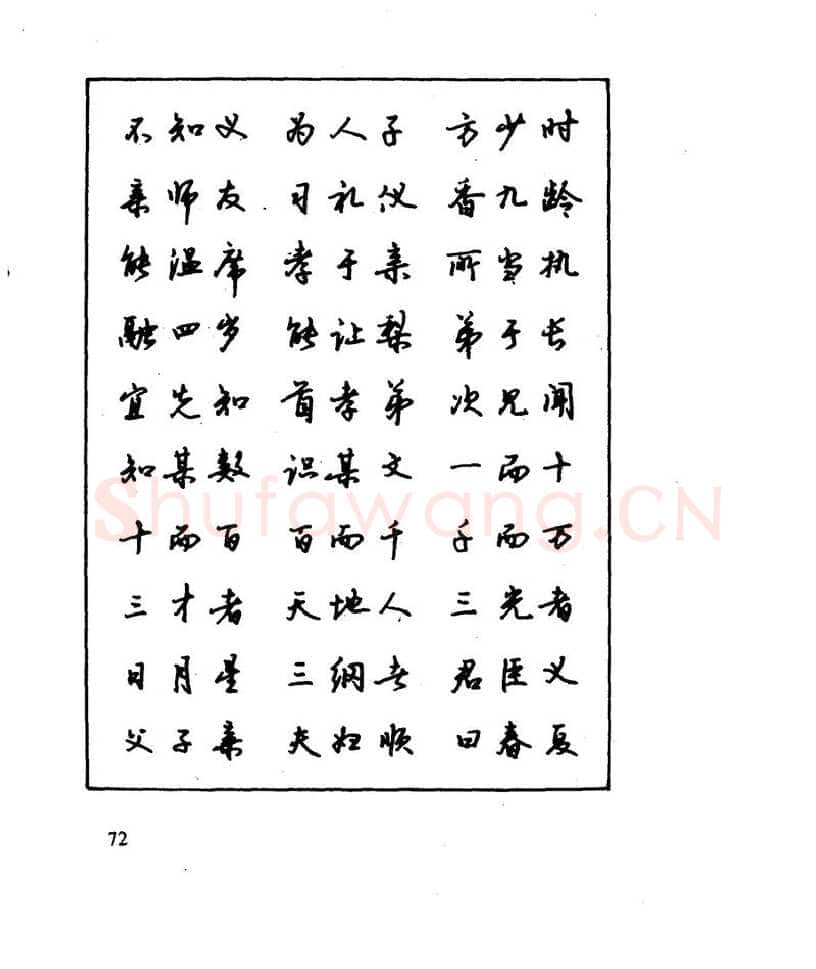 不知义 为人子 方少时
亲师友 习礼仪 香九龄
能温席 孝于亲 所当执
融四岁 能让梨 弟于长
宜先知 首孝弟 次见闻
知某数 识某文 一而十
十而百 百而千 千而万
三才者 天地人 三光者
日月星 三纲者 君臣义
父子亲 夫妇顺 曰春夏
72
Shufawang.CN